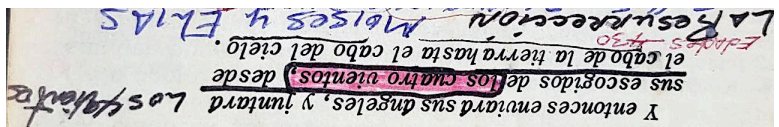 Y entonces enviará sus ángeles, y juntará Los 4 vientos
sus escogidos de los cuatro vientos, desde
el cabo de la tierra hasta el cabo del cielo.
Edades 430
LA RESURRECCIÓN MOISES Y ELIAS